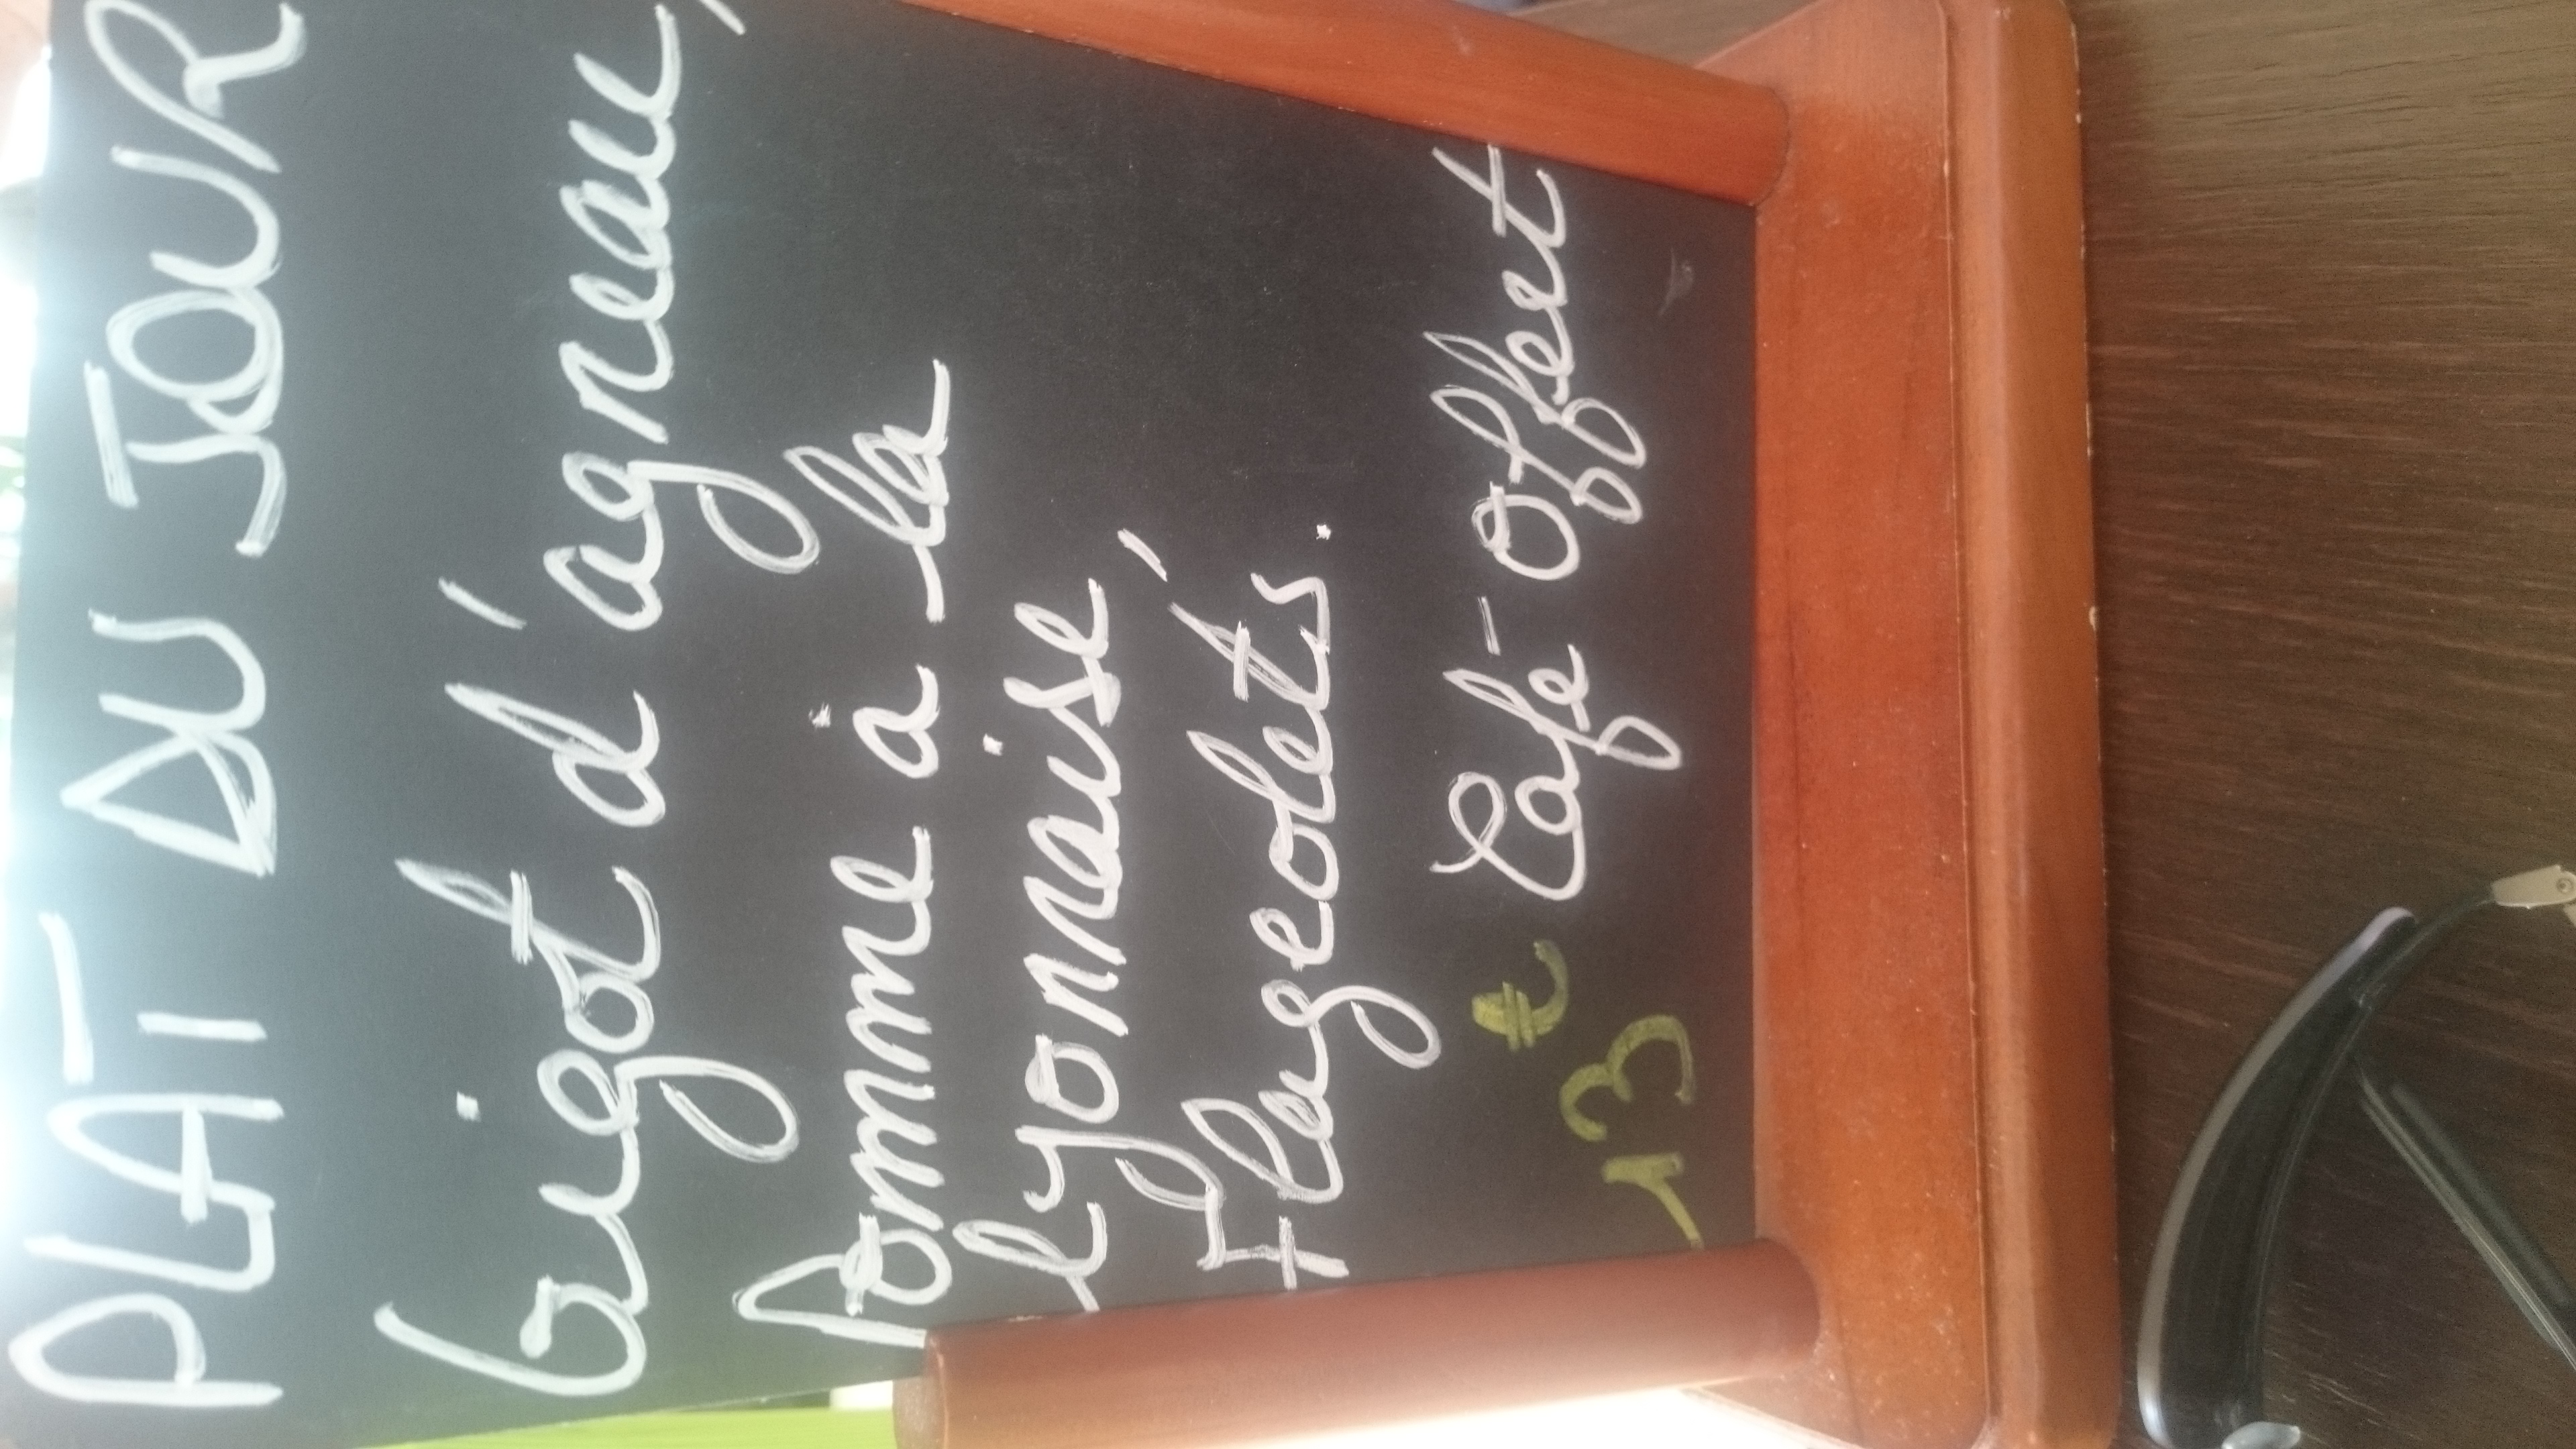 PLAT DU JOUR
Gigot d'agneau,
Pomme à la
lyonnaise,
Flageolets.
13€ Café-offert